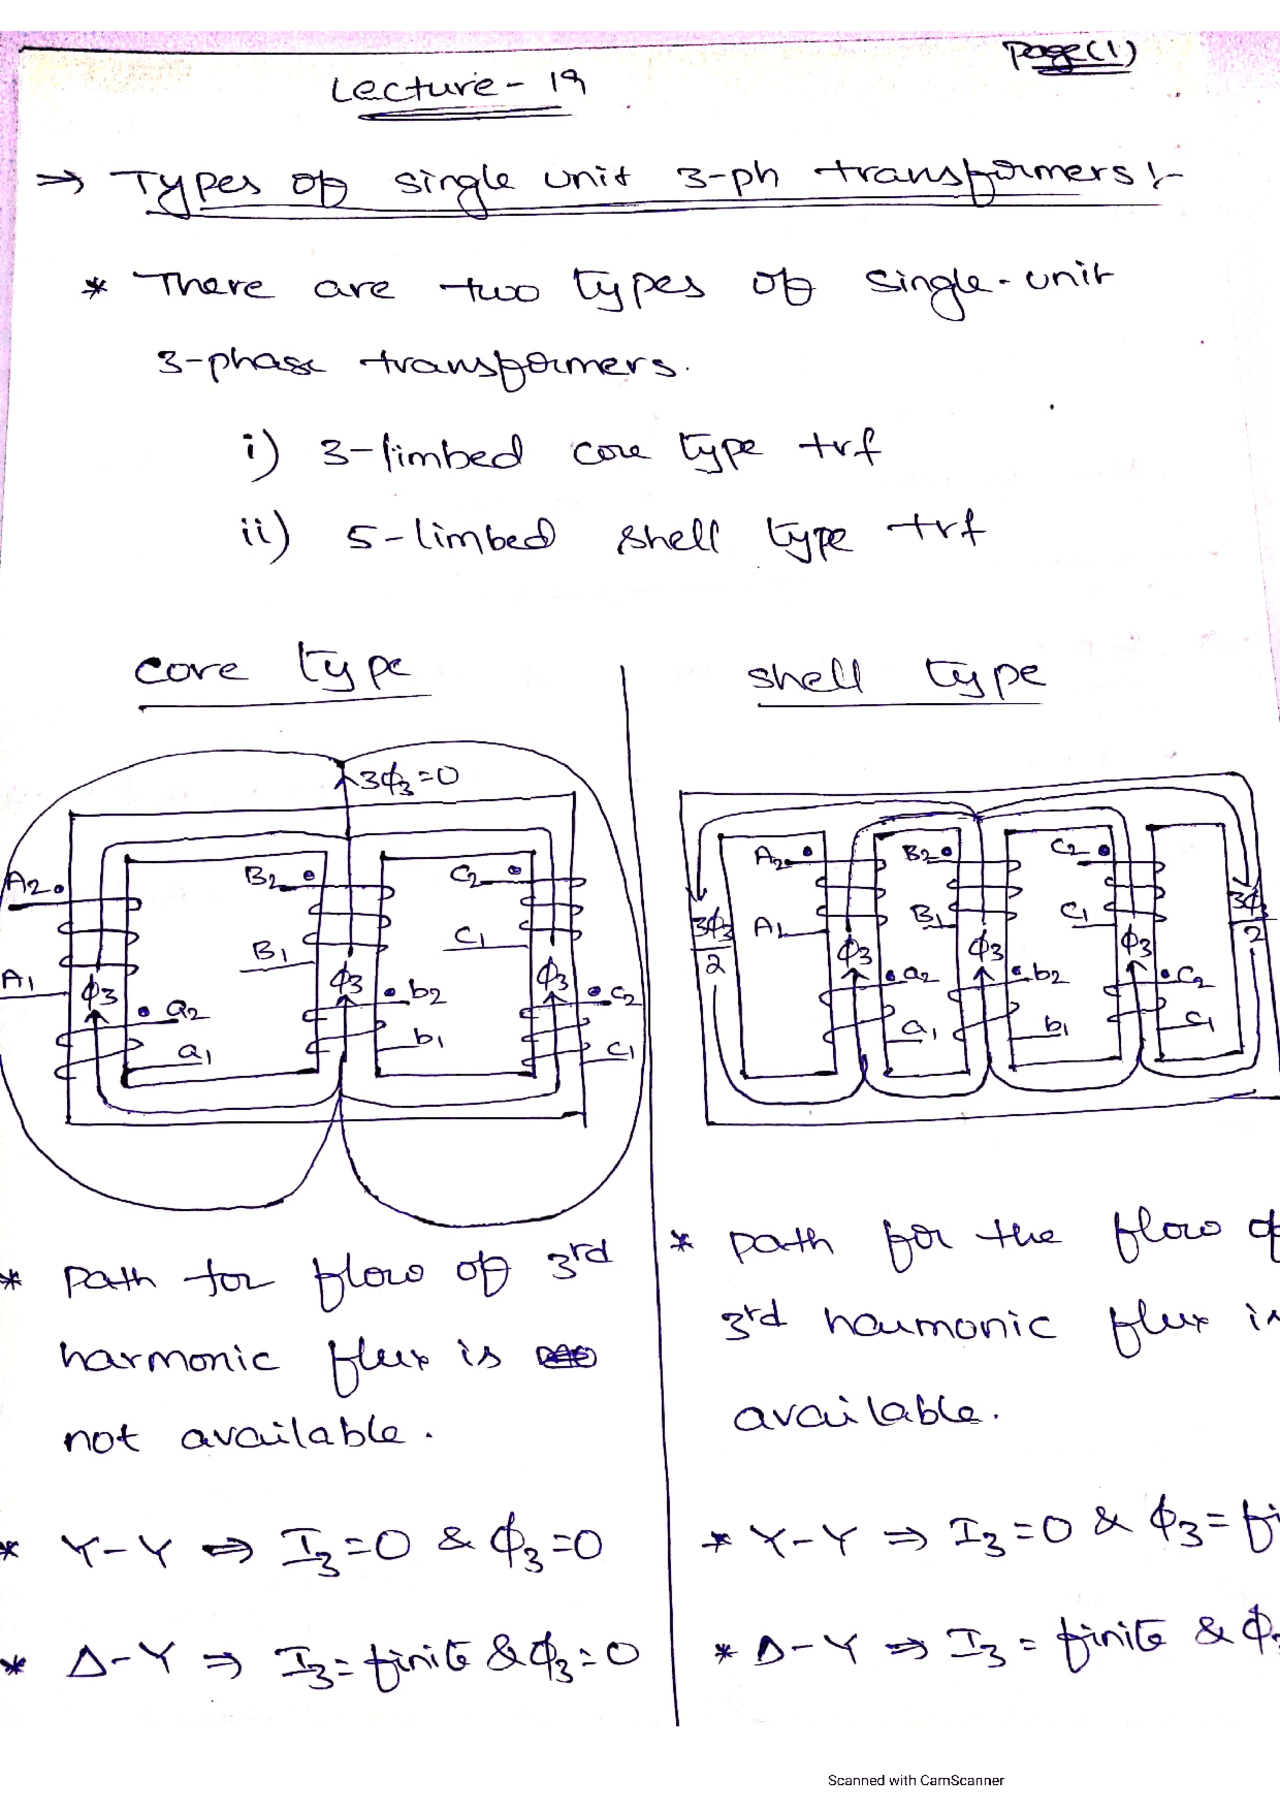 Page(1)
Lecture - 19
⇒ Types of single unit 3-ph transformers :-
* There are two types of single-unit
3-phase transformers.
i) 3-limbed core type trf
ii) 5-limbed shell type trf
core type
3ϕ3=0
A2
B2
C2
A1
B1
C1
ϕ3
ϕ3
ϕ3
a2
b2
c2
a1
b1
c1
* Path for flow of 3rd
harmonic flux is
not available.
* Y-Y ⇒ I3=0 & ϕ3=0
* Δ-Y ⇒ I3=finite & ϕ3=0
shell type
A2
B2
C2
3ϕ3/2
A1
B1
C1
3ϕ3/2
ϕ3
ϕ3
ϕ3
a2
b2
c2
a1
b1
c1
* Path for the flow of
3rd harmonic flux is
available.
* Y-Y ⇒ I3=0 & ϕ3=fi
* Δ-Y ⇒ I3=finite & ϕ3
Scanned with CamScanner